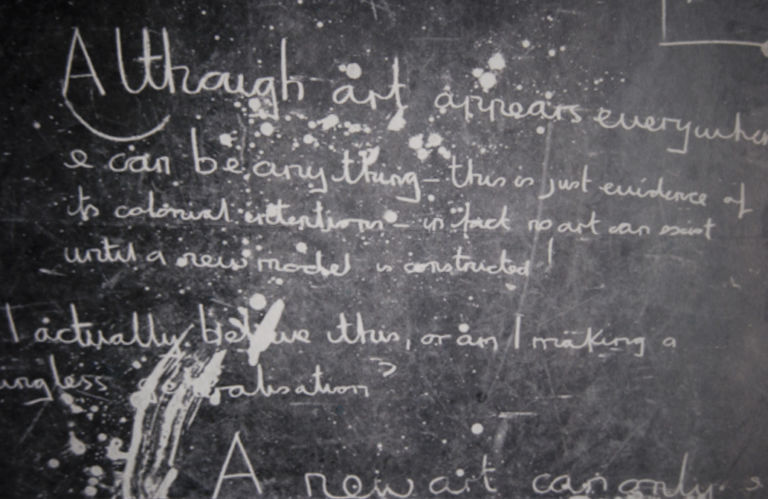 Although art appears everywhere
e can be anything – this is just evidence of
its colonial intentions – in fact no art can exist
until a new model is constructed!
I actually believe this, or am I making a
ingless generalisation?
A new art can only